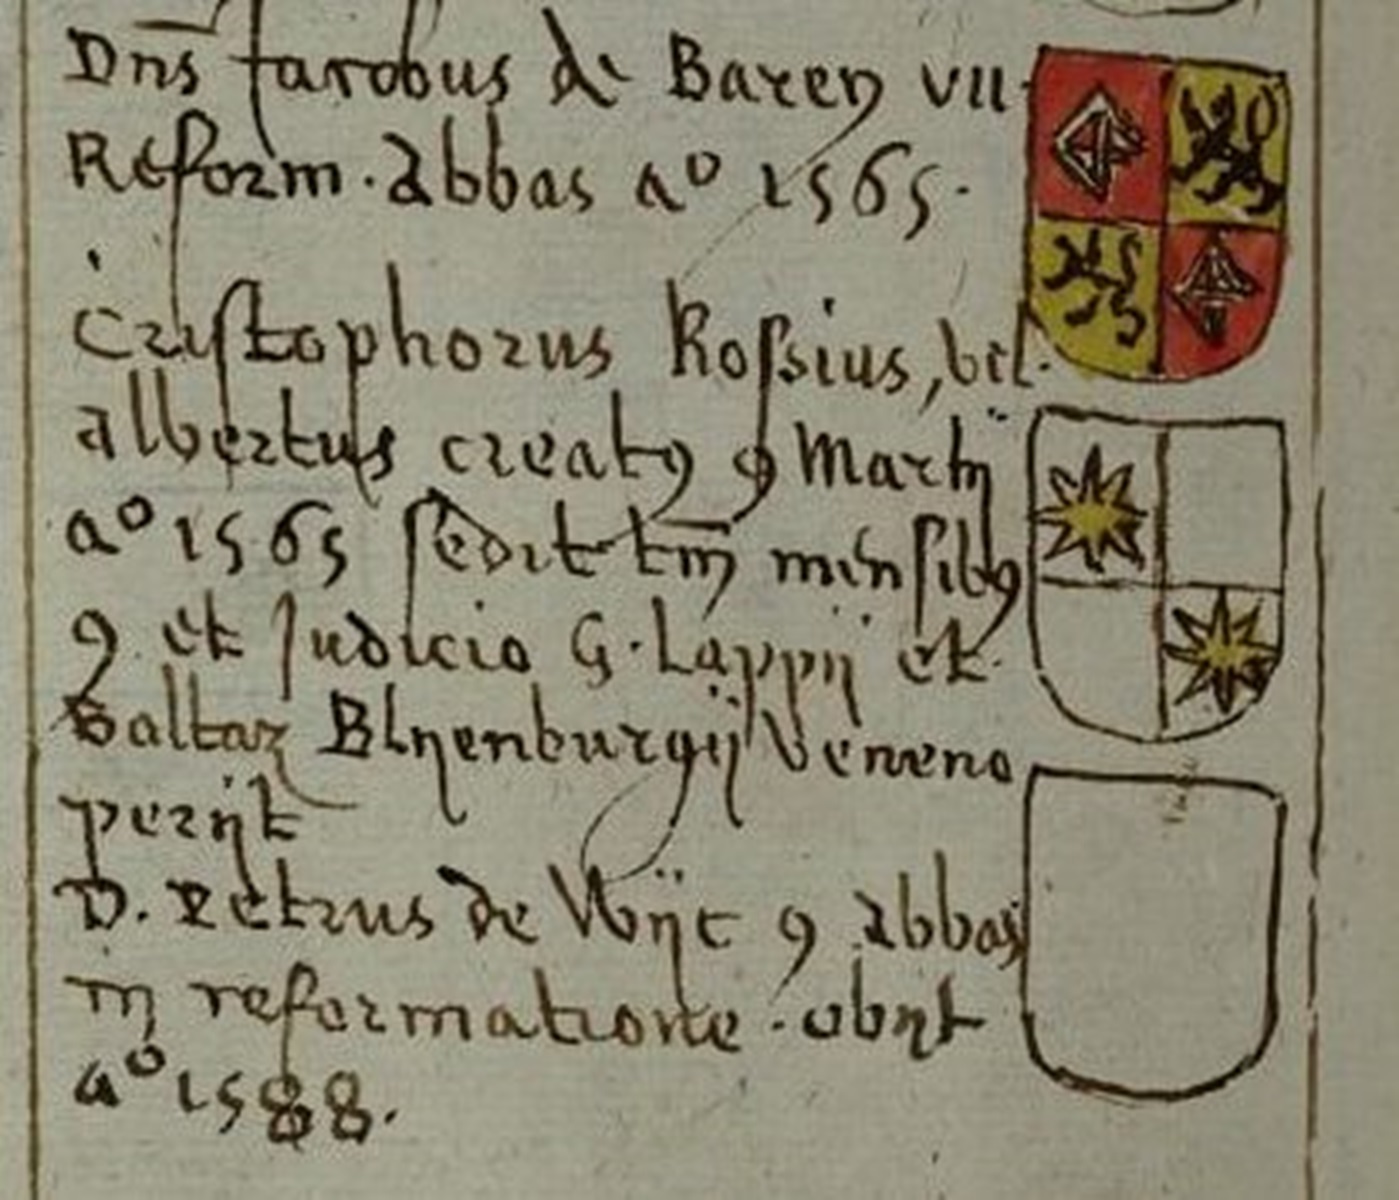 Dns Jacobus de Baren VII
Reform. abbas aº 1565.
Cristophorus Roſsius, vel
albertus creatꝯ 9 Martij
aº 1565 ſedit tm̄ menſibꝯ
9 et Judicio G. Lappij et
Baltaz Blyenburgij Veneno
perijt
D. Petrus de Wijc 9 abbas
in reformatione. obijt
aº 1588.